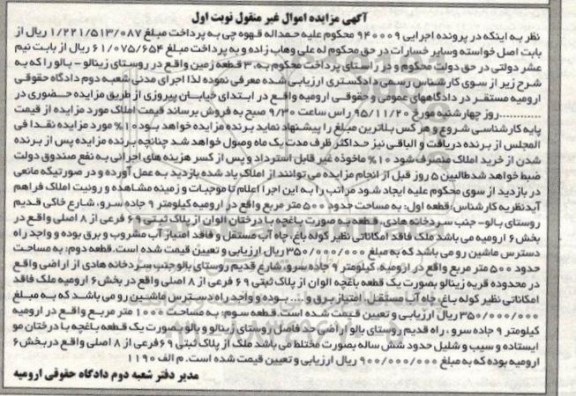 آگهی مزایده اموال غیر منقول نوبت اول
نظر به اینکه در پرونده اجرایی ۹۴۰۰۰۹ محکوم علیه حمداله قهوه چی به پرداخت مبلغ ۱/۲۲۱/۵۱۳/۰۸۷ ریال از
بابت اصل خواسته وسایر خسارات در حق محکوم له علی وهاب زاده و به پرداخت مبلغ ۶۱/۰۷۵/۶۵۴ ریال از بابت نیم
عشر دولتی در حق دولت محکوم و در راستای پرداخت محکوم به، ۳ قطعه زمین واقع در روستای زینالو - بالو را که به
شرح زیر از سوی کارشناس رسمی دادگستری ارزیابی شده معرفی نموده لذا اجرای مدنی شعبه دوم دادگاه حقوقی
ارومیه مستقر در دادگاههای عمومی و حقوقی ارومیه واقع در ابتدای خیابان پیروزی از طریق مزایده حضوری در
............روز چهارشنبه مورخ ۹۵/۱۱/۲۰ راس ساعت ۹/۳۰ صبح به فروش برساند قیمت املاک مورد مزایده از قیمت
پایه کارشناسی شروع و هر کس بالاترین مبلغ را پیشنهاد نماید برنده مزایده خواهد بود ۱۰% مورد مزایده نقدا فی
المجلس از برنده دریافت و الباقی نیز حداکثر ظرف مدت یک ماه وصول خواهد شد چنانچه برنده مزایده پس از برنده
شدن از خرید املاک منصرف شود ۱۰% ماخوذه غیر قابل استرداد و پس از کسر هزینه های اجرائی به نفع صندوق دولت
ضبط خواهد شد طالبین ۵ روز قبل از انجام مزایده می توانند از املاک یاد شده بازدید به عمل آورده و در صورتیکه مانعی
در بازدید از سوی محکوم علیه ایجاد شود مراتب را به این اجرا اعلام تا موجبات و زمینه مشاهده و رویت املاک فراهم
آید نظریه کارشناس: قطعه اول: به مساحت حدود ۵۰۰ متر مربع واقع در ارومیه کیلومتر ۹ جاده سرو، شارع خاکی قدیم
روستای بالو- جنب سردخانه هادی، قطعه به صورت باغچه با درختان الوان از پلاک ثبتی ۶۹ فرعی از ۸ اصلی واقع در
بخش ۶ ارومیه می باشد ملک فاقد امکاناتی نظیر کوله باغ، چاه آب مستقل و فاقد امتیاز آب مشروب و برق بوده و واجد راه
دسترس ماشین رو می باشد که به مبلغ ۳۵۰/۰۰۰/۰۰۰ ریال ارزیابی و تعیین قیمت شده است. قطعه دوم: به مساحت
حدود ۵۰۰ متر مربع واقع در ارومیه، کیلومتر ۹ جاده سرو، شارع قدیم روستای بالو جنب سردخانه هادی از اراضی واقع
در محدوده قریه زینالو بصورت یک قطعه باغچه الوان از پلاک ثبتی ۶۹ فرعی از ۸ اصلی واقع در بخش ۶ ارومیه ملک فاقد
امکاناتی نظیر کوله باغ، چاه آب مستقل، امتیاز برق و... بوده و واجد راه دسترس ماشین رو می باشد که به مبلغ
۳۵۰/۰۰۰/۰۰۰ ریال ارزیابی و تعیین قیمت شده است. قطعه سوم: به مساحت ۱۰۰۰ متر مربع واقع در ارومیه
کیلومتر ۹ جاده سرو، راه قدیم روستای بالو اراضی حد فاصل روستای زینالو و بالو بصورت یک قطعه باغچه با درختان مو
ایستاده و سیب و شلیل حدود شش ساله بصورت مختلط می باشد ملک از پلاک ثبتی ۶۹ فرعی از ۸ اصلی واقع در بخش ۶
ارومیه بوده که به مبلغ ۹۰۰/۰۰۰/۰۰۰ ریال ارزیابی و تعیین قیمت شده است. م الف ۱۱۹۰
مدیر دفتر شعبه دوم دادگاه حقوقی ارومیه